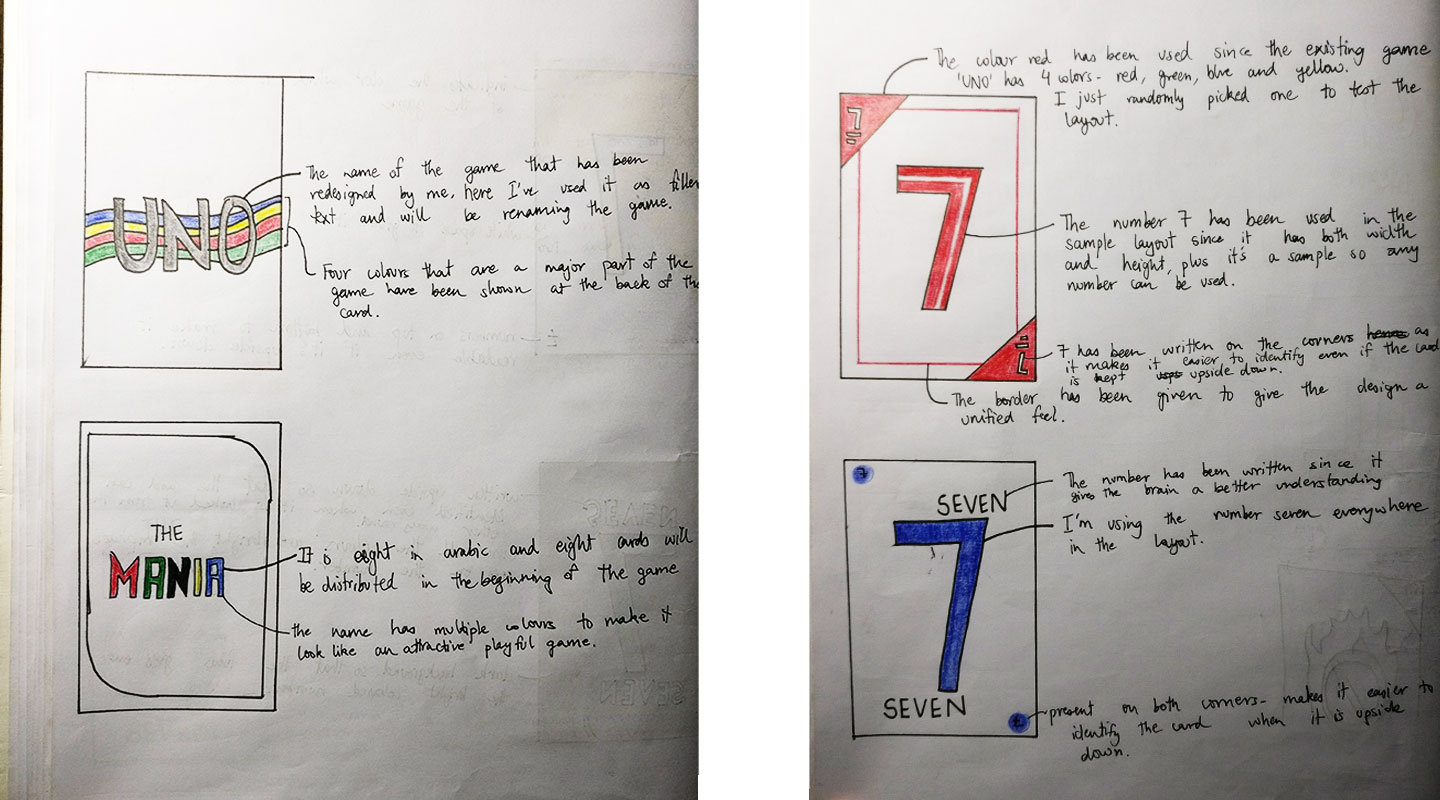 UNO
The name of the game that has been
redesigned by me, here I've used it as filler
text and will be renaming the game.
Four colours that are a major part of the
game have been shown at the back of the
card.
THE
MANIA
It is eight in arabic and eight cards will
be distributed in the beginning of the game
the name has multiple colours to make it
look like an attractive playful game.
The colour red has been used since the existing game
'UNO' has 4 colors- red, green, blue and yellow.
I just randomly picked one to test the
layout.
7
7
The number 7 has been used in the
sample layout since it has both width
and height, plus it's a sample so any
number can be used.
7
7 has been written on the corners as
it makes it easier to identify even if the card
is kept upside down.
The border has been given to give the design a
unified feel.
7
SEVEN
The number has been written since it
gives the brain a better understanding
7
I'm using the number seven everywhere
in the layout.
SEVEN
7
present on both corners- makes it easier to
identify the card when it is upside
down.